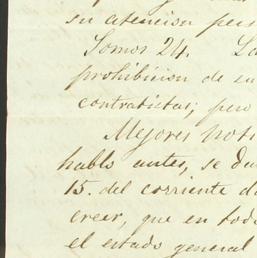 su atencion pers
Somos 24. La
prohibicion de su
contratistas; pero
Mejores noti
hablo antes, se da
15. del corriente d
creer, que en todo
el estado general